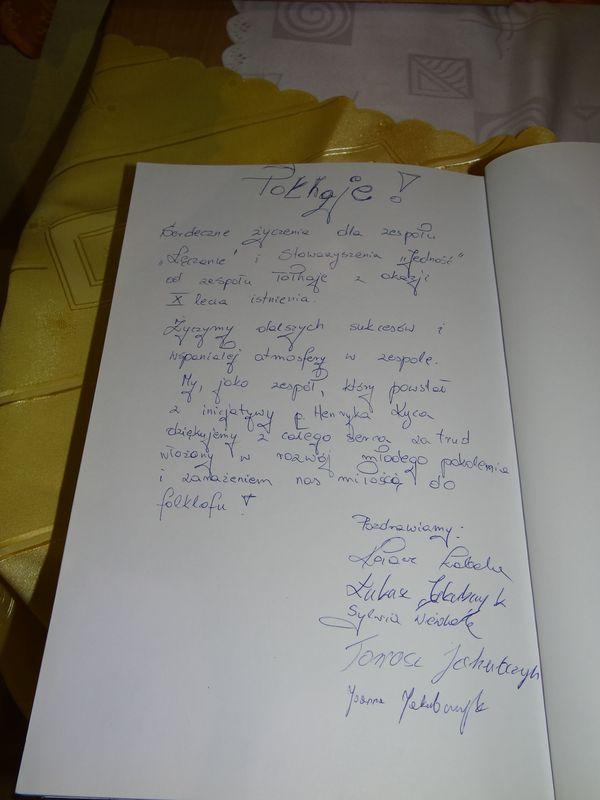 Tołhaje!
Serdeczne życzenia dla zespołu
„Łęczanie" i Stowarzyszenia „Jedność"
od zespołu Tołhaje z okazji
X lecia istnienia.
Życzymy dalszych sukcesów i
wspaniałej atmosfery w zespole.
My, jako zespół, który powstał
z inicjatywy p. Henryka Kyca
dziękujemy z całego serca za trud
włożony w rozwój młodego pokolenia
i zarażeniem nas miłością do
folkloru!
Pozdrawiamy:
Łukasz Jakubczyk
Sylwia
Tomasz Jakubczyk
Joanna Jakubczyk